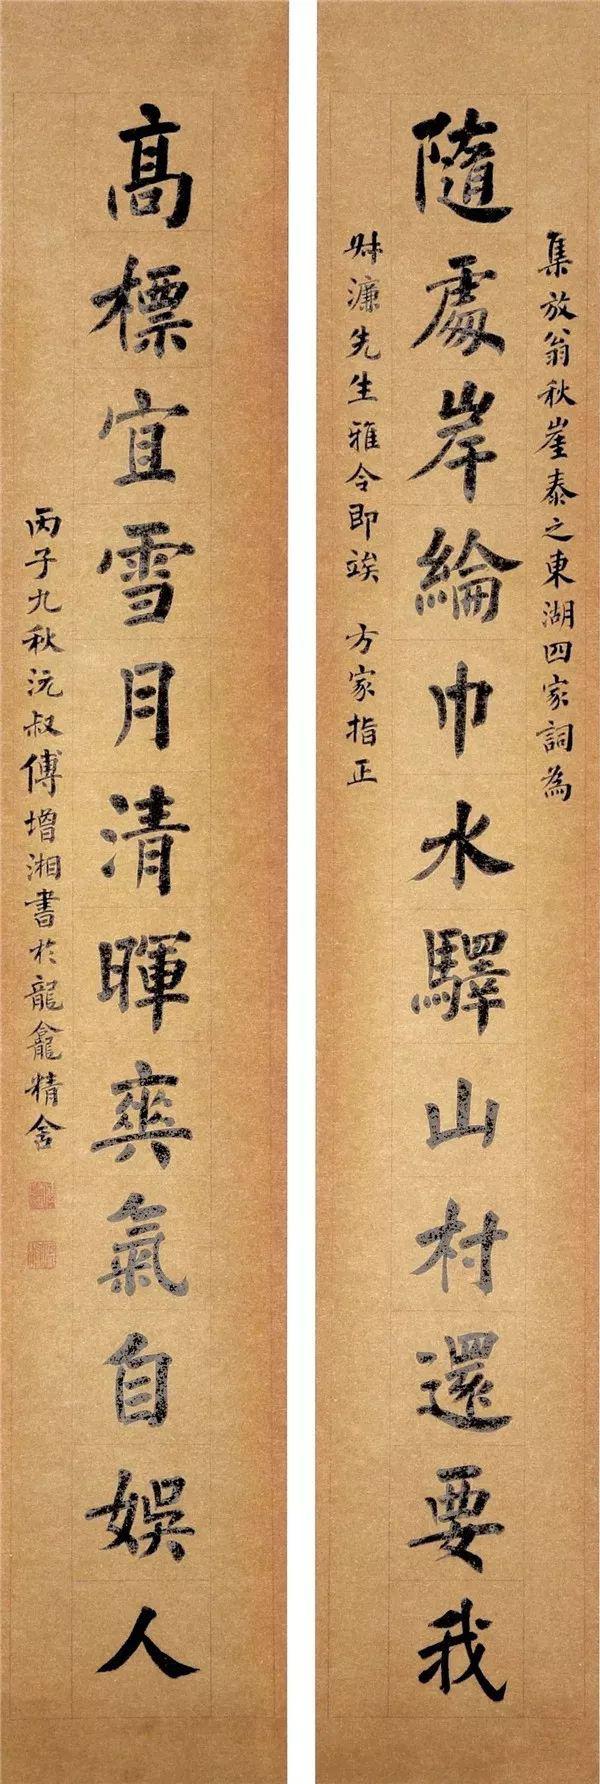 集放翁秋崖泰之東湖四家詞為
隨處岸綸巾水驛山村還要我
濂先生雅令即竢 方家指正
高標宜雪月清暉爽氣自娛人
丙子九秋沅叔傅增湘書於龍龕精舍